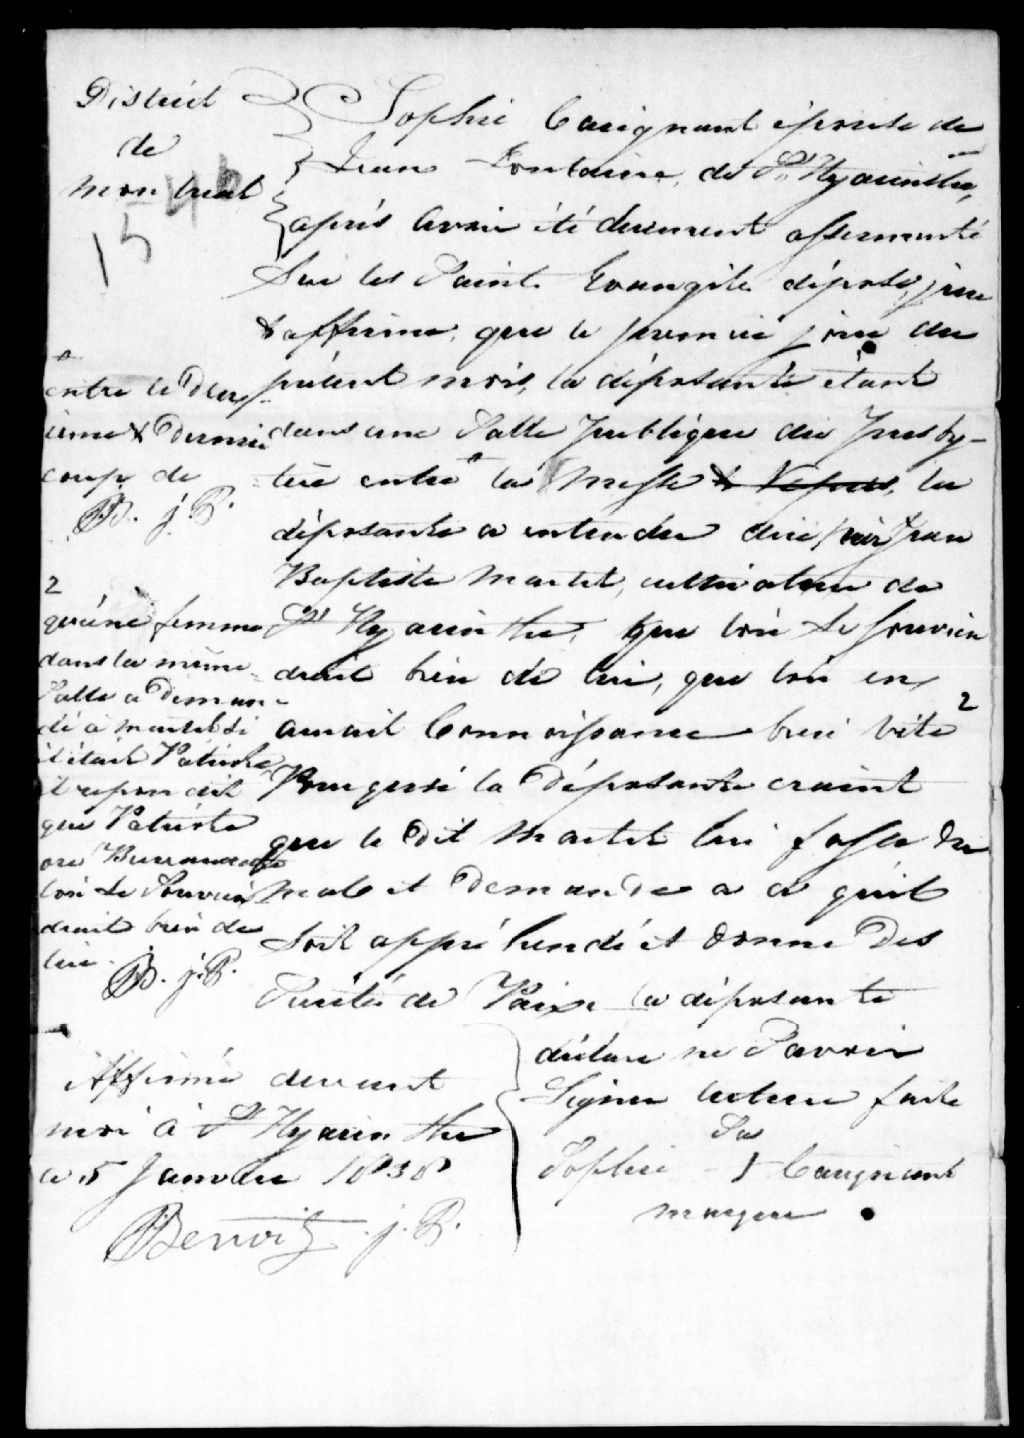 District
de
montreal
1546
Sophie Carignant épouse de
Jean Fontaine, de St Hyacinthe,
après avoir été duement assermenté
sur les Saints Evangile dépose, jure
& affirme, que le premier jour du
présent mois, la déposante étant
dans une Salle publique du Presby-
tère entre la Messe & Vepres, la
déposante a entendu dire par Jean
Baptiste Martel, cultivateur de
St Hyacinthe, que l'on se souvien
drait bien de lui, que l'on en
aurait Connoissance bien vite 2
Pourquoi la Déposante craint
que le dit Martel lui fasse du
mal et Demande a ce qu'il
soit appréhendé et donne Des
Suretés de Paix la déposante
déclare ne Savoir
Signer lecture faite
Sa
Sophie + Carignant
marque
entre le Deux
ième & Dernier
coup de
B. j.P.
2
qu'une femme
dans la même
Salle a Deman
dé à Martel si
il était Patriote
il repondit
que Patriote
ou Bureaucrate
l'on se Souvien
drait bien de
lui.
B. j.P.
Affirmé devant
moi à St Hyacinthe
ce 5 Janvier 1838
Benoit j.P.